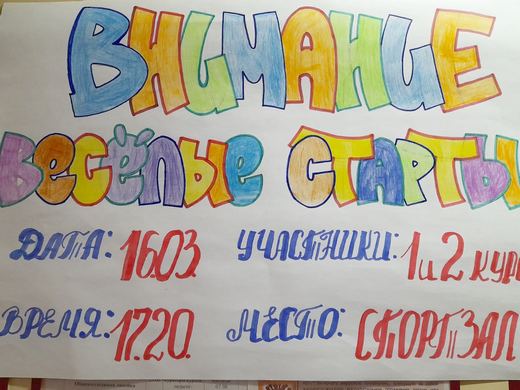 ВНИМАНИЕ
ВЕСЁЛЫЕ СТАРТЫ
ДАТА: 16.03. УЧАСТНИКИ: 1 и 2 КУР
ВРЕМЯ: 17.20. МЕСТО: СПОРТЗАЛ